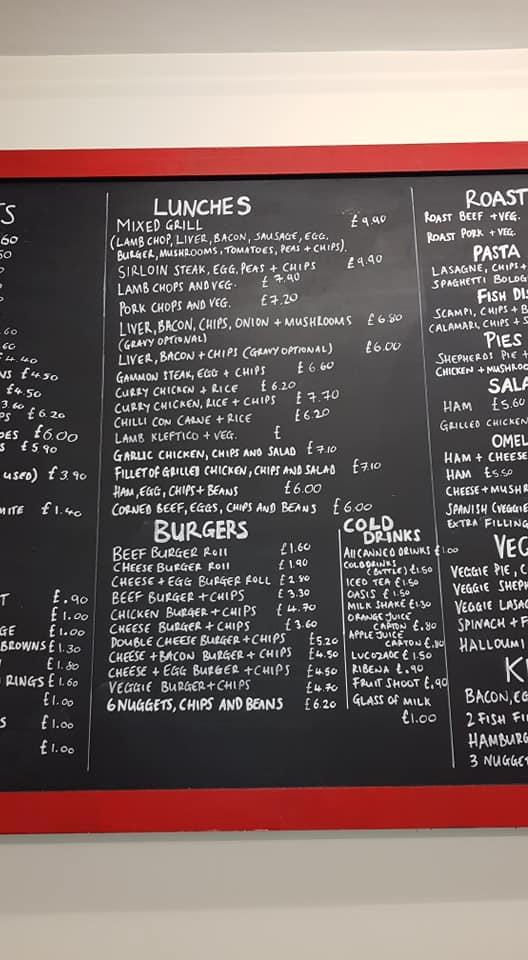 S
.60
50
.60
.60
£4.40
NS £4.50
£4.50
3.60
PS £6.20
OES £6.00
S £5.90
USED) £3.90
MITE £1.40
T £.90
£1.00
GE £1.00
BROWNS £1.30
£1.80
RINGS £1.60
£1.00
S £1.00
£1.00
LUNCHES
MIXED GRILL £9.90
(LAMB CHOP, LIVER, BACON, SAUSAGE, EGG,
BURGER, MUSHROOMS, TOMATOES, PEAS + CHIPS).
SIRLOIN STEAK, EGG, PEAS + CHIPS £9.90
LAMB CHOPS AND VEG. £7.90
PORK CHOPS AND VEG. £7.20
LIVER, BACON, CHIPS, ONION + MUSHROOMS £6.80
(GRAVY OPTIONAL)
LIVER, BACON + CHIPS (GRAVY OPTIONAL) £6.00
GAMMON STEAK, EGG + CHIPS £6.60
CURRY CHICKEN + RICE £6.20
CURRY CHICKEN, RICE + CHIPS £7.70
CHILLI CON CARNE + RICE £6.20
LAMB KLEPTICO + VEG. £
GARLIC CHICKEN, CHIPS AND SALAD £7.10
FILLET OF GRILLED CHICKEN, CHIPS AND SALAD £7.10
HAM, EGG, CHIPS + BEANS £6.00
CORNED BEEF, EGGS, CHIPS AND BEANS £6.00
BURGERS
BEEF BURGER ROLL £1.60
CHEESE BURGER ROLL £1.90
CHEESE + EGG BURGER ROLL £2.80
BEEF BURGER + CHIPS £3.30
CHICKEN BURGER + CHIPS £4.70
CHEESE BURGER + CHIPS £3.60
DOUBLE CHEESE BURGER + CHIPS £5.20
CHEESE + BACON BURGER + CHIPS £4.50
CHEESE + EGG BURGER + CHIPS £4.50
VEGGIE BURGER + CHIPS £4.70
6 NUGGETS, CHIPS AND BEANS £6.20
COLD
DRINKS
All CANNED DRINKS £1.00
COLD DRINKS
(BOTTLE) £1.50
ICED TEA £1.50
OASIS £1.50
MILK SHAKE £1.30
ORANGE JUICE
CARTON £.80
APPLE JUICE
CARTON £.80
LUCOZADE £1.50
RIBENA £.90
FRUIT SHOOT £.90
GLASS OF MILK
£1.00
ROAST
ROAST BEEF + VEG.
ROAST PORK + VEG.
PASTA
LASAGNE, CHIPS +
SPAGHETTI BOLOG
FISH DIS
SCAMPI, CHIPS + B
CALAMARI, CHIPS + S
PIES
SHEPHERDS PIE +
CHICKEN + MUSHROO
SALA
HAM £5.60
GRILLED CHICKEN
OMEL
HAM + CHEESE
HAM £5.50
CHEESE + MUSHR
SPANISH (VEGGIE
EXTRA FILLING
VEG
VEGGIE PIE, C
VEGGIE SHEPH
VEGGIE LASA
SPINACH + F
HALLOUMI
K
BACON, EG
2 FISH FI
HAMBURG
3 NUGGET